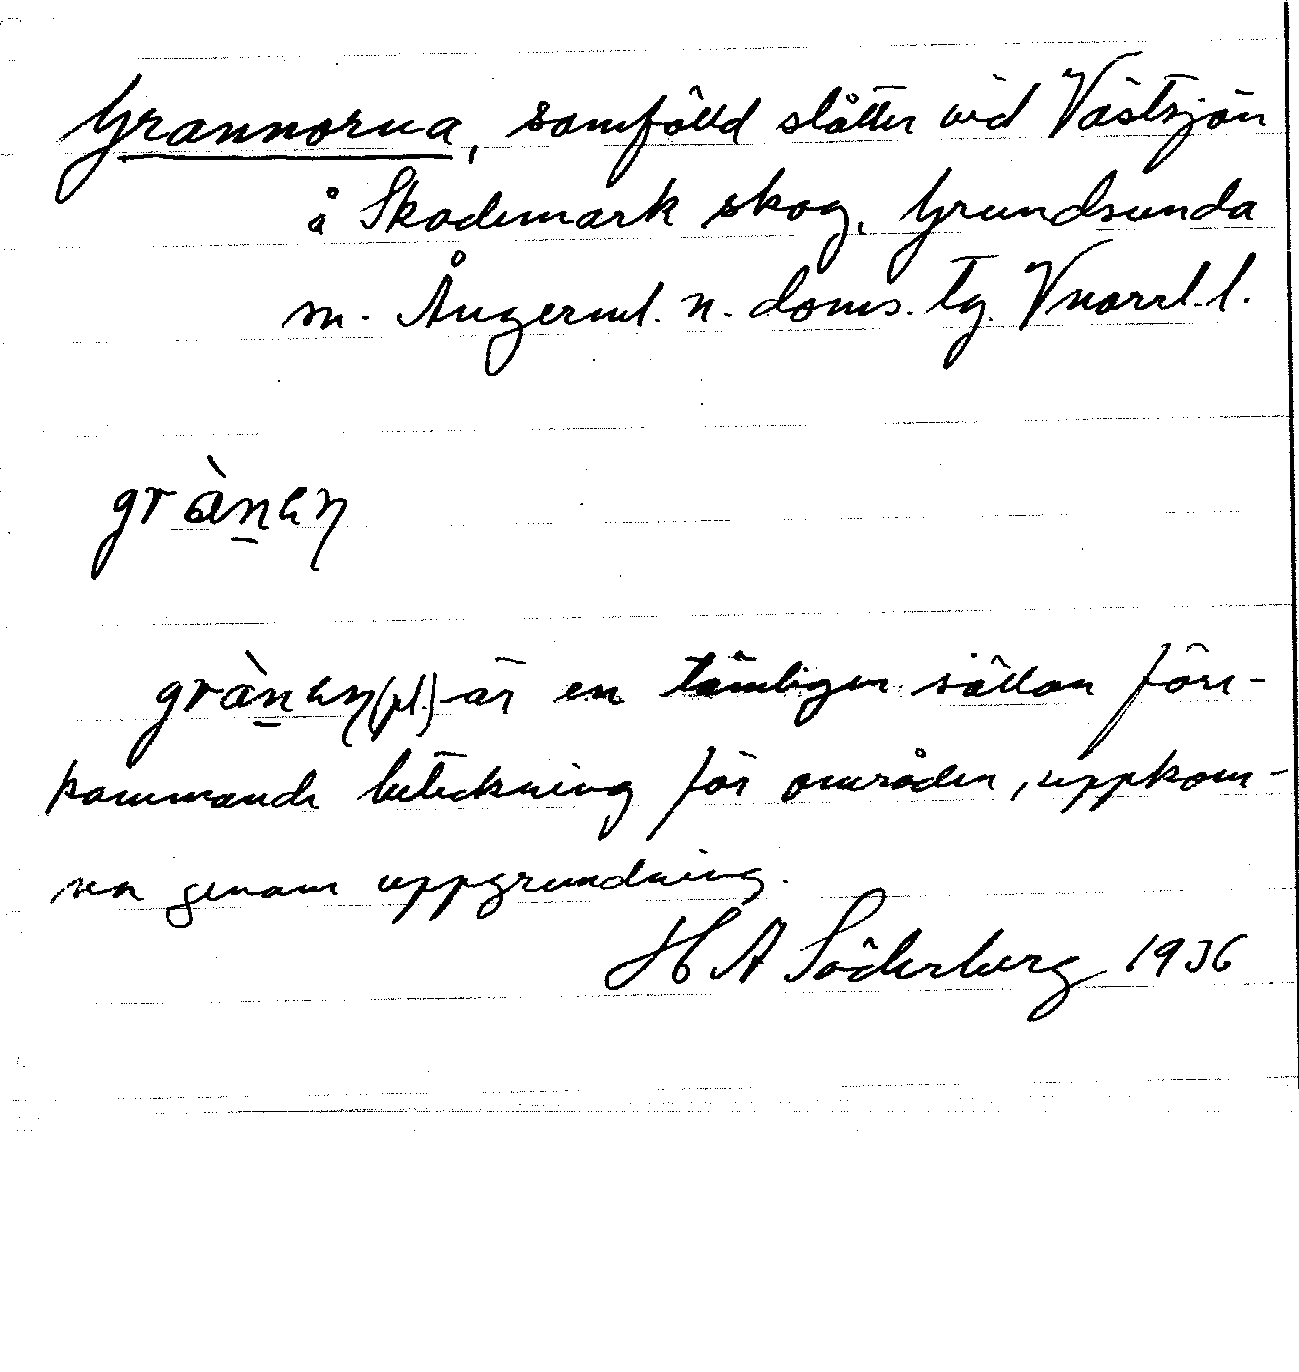 Grannorna, samfälld slåtter vid Västsjön
å Skademark skog, Grundsunda
sn. Ångerml. n. doms. tg. Vnorrl. l.
gràn̠an
gràn̠an (pl.) är en tämligen sällan före-
kommande beteckning för områden, uppkom-
na genom uppgrundning.
H A Söderberg 1936